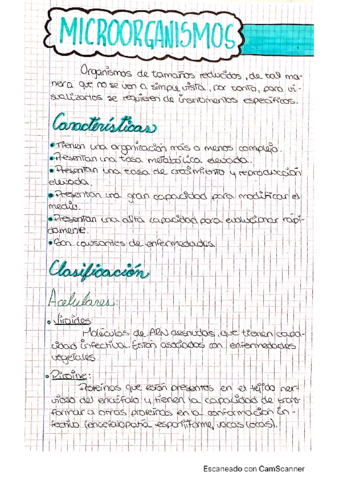 MICROORGANISMOS
Organismos de tamaños reducidos, de tal ma
nera que no se ven a simple vista, por tanto, para vi-
sualizarlos se requieren de instrumentos específicos.
Características
• Tienen una organización más o menos compleja.
• Presentan una tasa metabólica elevada.
• Presentan una tasa de crecimiento y reproducción
elevada.
• Presentan una gran capacidad para modificar el
medio.
• Presentan una alta capacidad para evolucionar rápi-
damente.
• Son causantes de enfermedades.
Clasificación
Acelulares:
• Viroides:
Moléculas de ARN desnudas, que tienen capa-
cidad infectiva. Están asociados con enfermedades
vegetales.
• Prione:
Proteínas que están presentes en el tejido ner-
vioso del encéfalo y tienen la capacidad de trans
formar a otras proteínas en la conformación in-
fectiva (encefalopatía espongiforme, vacas locas).
Escaneado con CamScanner